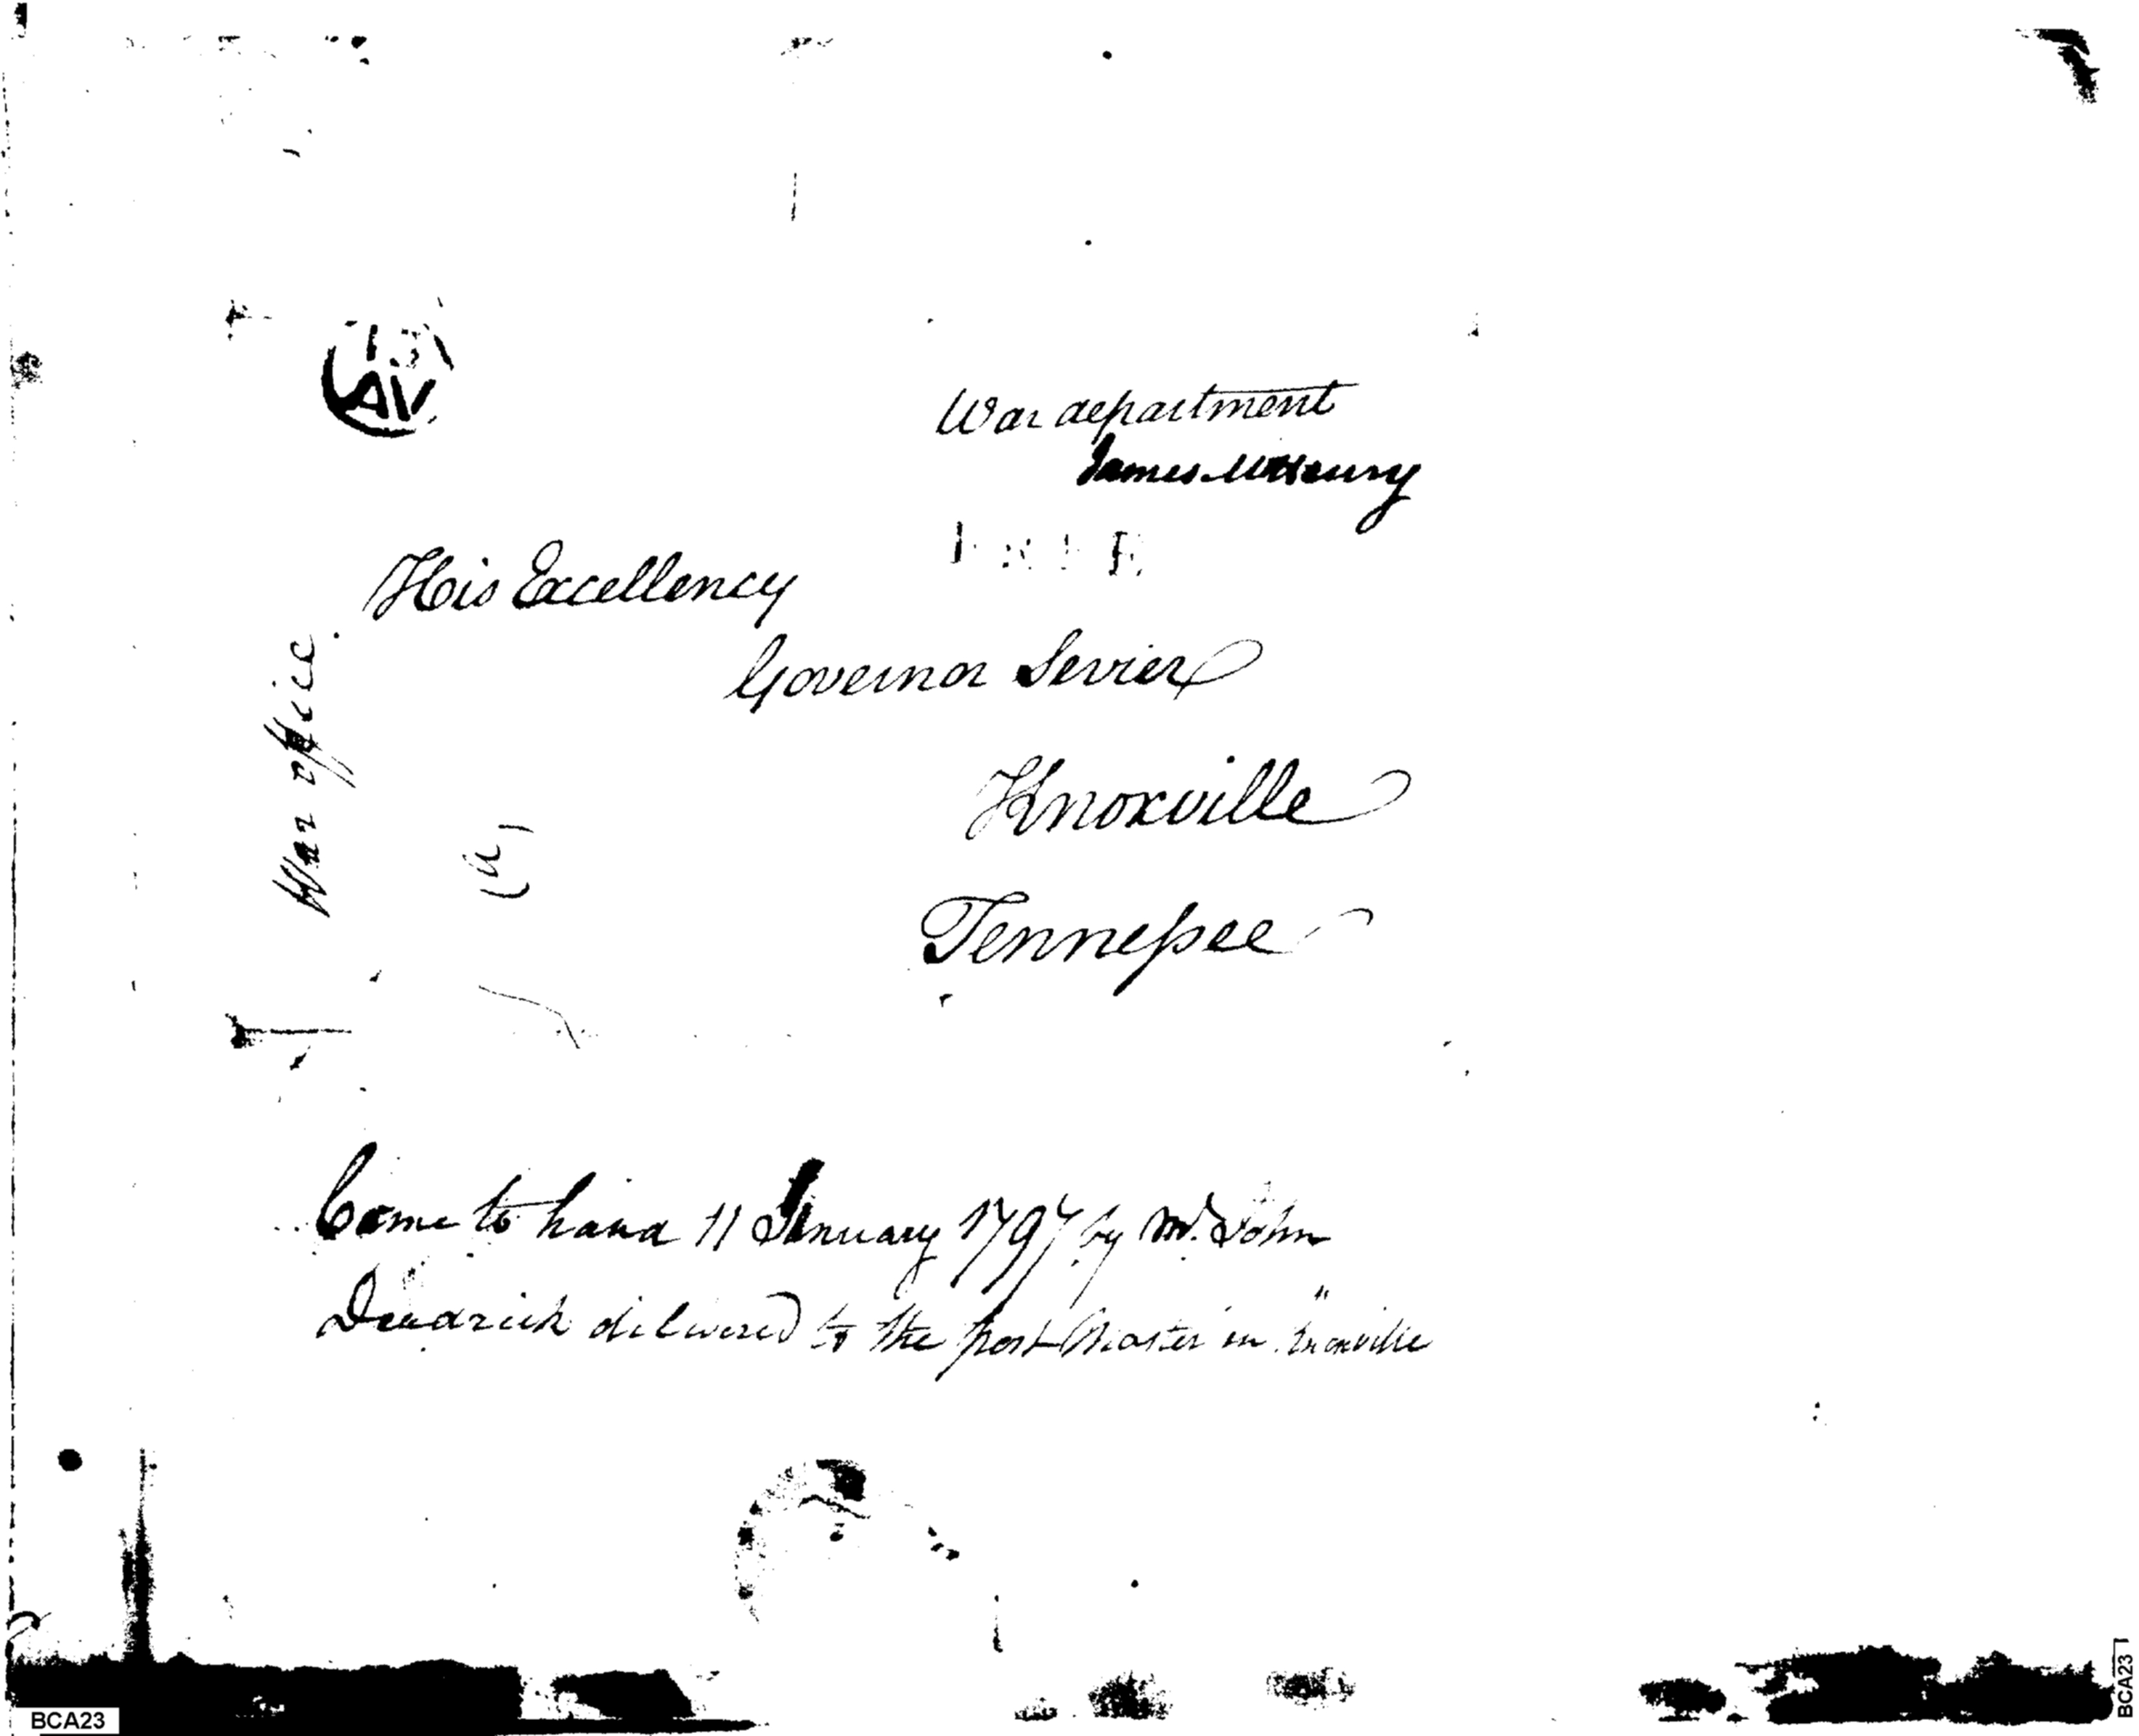 13
AV
War department
James McHenry
His Excellency
Governor Sevier
Knoxville
Tennessee
War office.
(a)
Come to hand 11 January 1797. by Mr. John
Deadrick delivered to the post Master in Knoxville
BCA23
BCA23